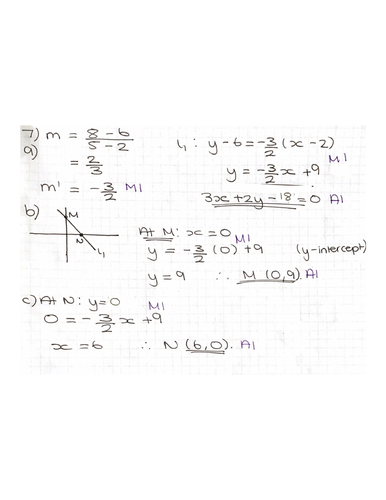 7) m = 8-6 / 5-2
a) = 2/3
m' = -3/2 M1
L₁ : y-6 = -3/2 (x-2)
M1
y = -3/2 x + 9
3x + 2y - 18 = 0 A1
b) M
N
L₁
At M: x = 0
M1
y = -3/2 (0) + 9 (y-intercept)
y = 9 ∴ M (0,9). A1
c) At N: y = 0 M1
0 = -3/2 x + 9
x = 6 ∴ N (6,0). A1